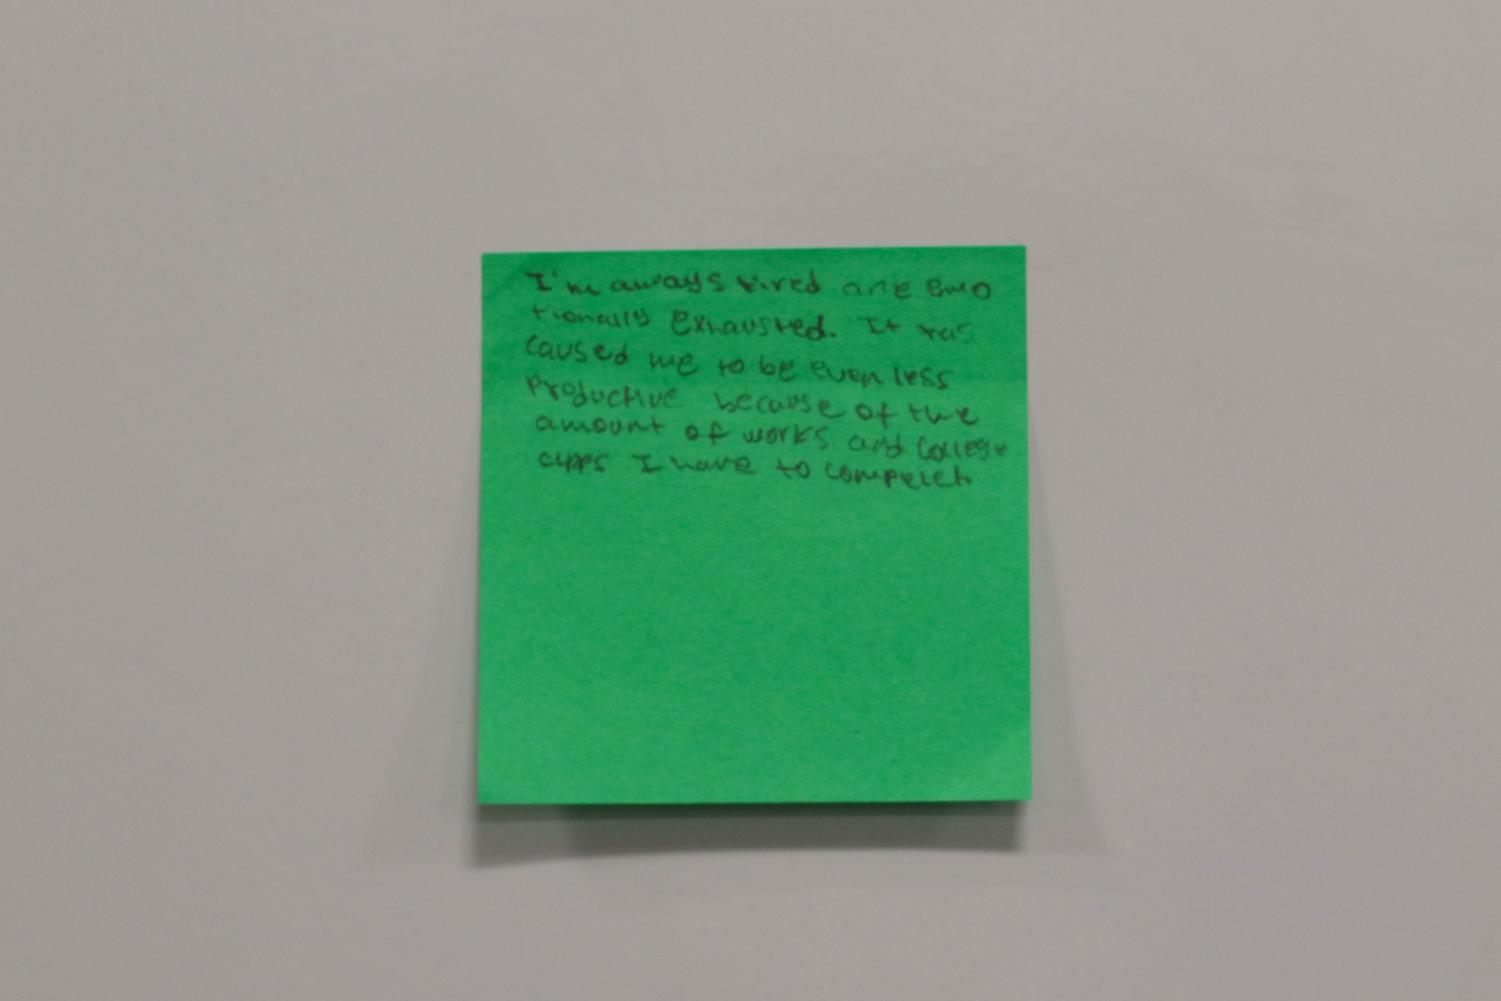 I'm aways tired ane emo
tionally exhausted. It has
caused me to be even less
productive because of the
amount of works and college
apps I have to compelet